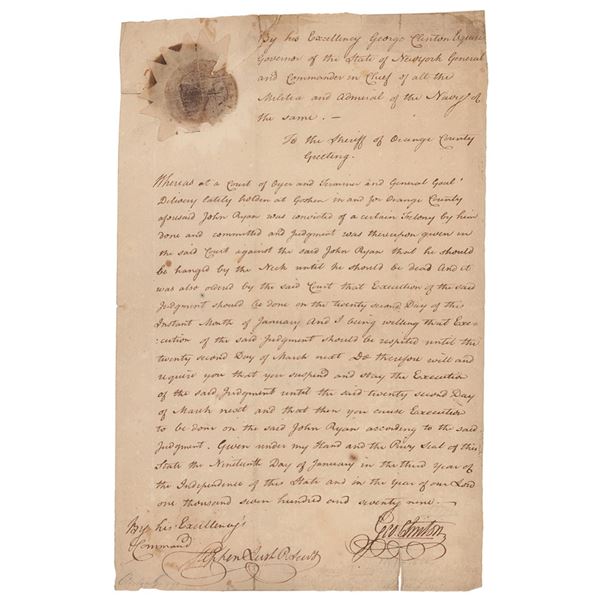 By his Excellency George Clinton Esquire
Governor of the State of Newyork General
and Commander in Chief of all the
Militia and Admiral of the Navy of
the same. —
To the Sheriff of Orange County
Greeting.
Whereas at a Court of Oyer and Terminer and General Goal
Delivery lately holden at Goshen in and for Orange County
aforesaid John Ryan was convicted of a certain Felony by him
done and committed and Judgment was thereupon given in
the said Court against the said John Ryan that he should
be hanged by the Neck until he should be dead And it
was also ordered by the said Court that Execution of the said
Judgment should be done on the twenty second Day of this
Instant Month of January And I being willing that Exe-
cution of the said Judgment should be respited until the
twenty second Day of March next Do therefore will and
require you that you suspend and stay the Execution
of the said Judgment until the said twenty second Day
of March next and that then you cause Execution
to be done on the said John Ryan according to the said
Judgment. Given under my Hand and the Privy Seal of this
State the Nineteenth Day of January in the third Year of
the Independence of this State and in the Year of our Lord
one thousand seven hundred and seventy nine. —
By his Excellency's
Command
Geo. Clinton
Stephen Lush P. Secry